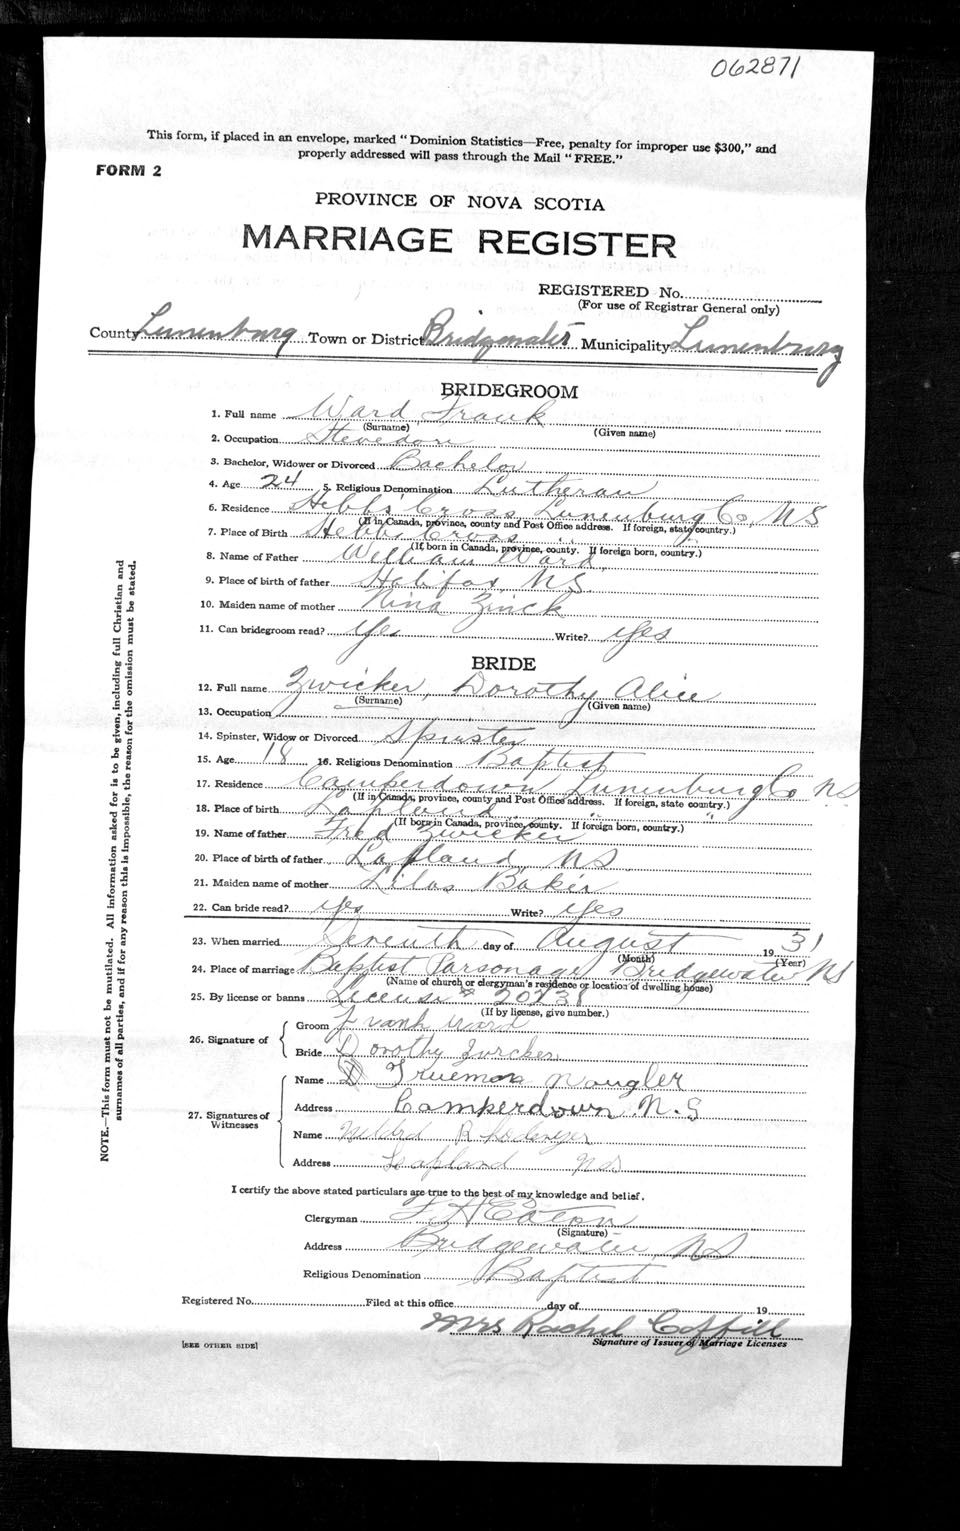 062871
This form, if placed in an envelope, marked "Dominion Statistics—Free, penalty for improper use $300," and
properly addressed will pass through the Mail "FREE."
FORM 2
PROVINCE OF NOVA SCOTIA
MARRIAGE REGISTER
REGISTERED No.
(For use of Registrar General only)
County Lunenburg Town or District Bridgewater Municipality Lunenburg
BRIDEGROOM
1. Full name Ward Frank
(Surname) (Given name)
2. Occupation Stevedore
3. Bachelor, Widower or Divorced Bachelor
4. Age 24 5. Religious Denomination Lutheran
6. Residence Hebbs Cross Lunenburg Co, NS
(If in Canada, province, county and Post Office address. If foreign, state country.)
7. Place of Birth Hebbs Cross " "
(If born in Canada, province, county. If foreign born, country.)
8. Name of Father William Ward
9. Place of birth of father Halifax, NS
10. Maiden name of mother Nina Zinck
11. Can bridegroom read? Yes Write? Yes
BRIDE
12. Full name Zwicker, Dorothy Alice
(Surname) (Given name)
13. Occupation
14. Spinster, Widow or Divorced Spinster
15. Age 18 16. Religious Denomination Baptist
17. Residence Camperdown Lunenburg Co NS
(If in Canada, province, county and Post Office address. If foreign, state country.)
18. Place of birth Lapland " "
(If born in Canada, province, county. If foreign born, country.)
19. Name of father Fred Zwicker
20. Place of birth of father Lapland, NS
21. Maiden name of mother Lilas Baker
22. Can bride read? Yes Write? Yes
23. When married Seventh day of August 1931
(Month) (Year)
24. Place of marriage Baptist Parsonage Bridgewater NS
(Name of church or clergyman's residence or location of dwelling house)
25. By license or banns License #
(If by license, give number.)
26. Signature of
Groom Frank Ward
Bride Dorothy Zwicker
27. Signatures of Witnesses
Name Trueman Naugler
Address Camperdown N.S
Name Mildred
Address Lapland NS
I certify the above stated particulars are true to the best of my knowledge and belief.
Clergyman F. H. Eaton
(Signature)
Address Bridgewater, NS
Religious Denomination Baptist
Registered No. Filed at this office day of 19
Mrs Rachel Coffill
[SEE OTHER SIDE] Signature of Issuer of Marriage Licenses
NOTE.—This form must not be mutilated. All information asked for is to be given, including full Christian and
surnames of all parties, and if for any reason this is impossible, the reason for the omission must be stated.